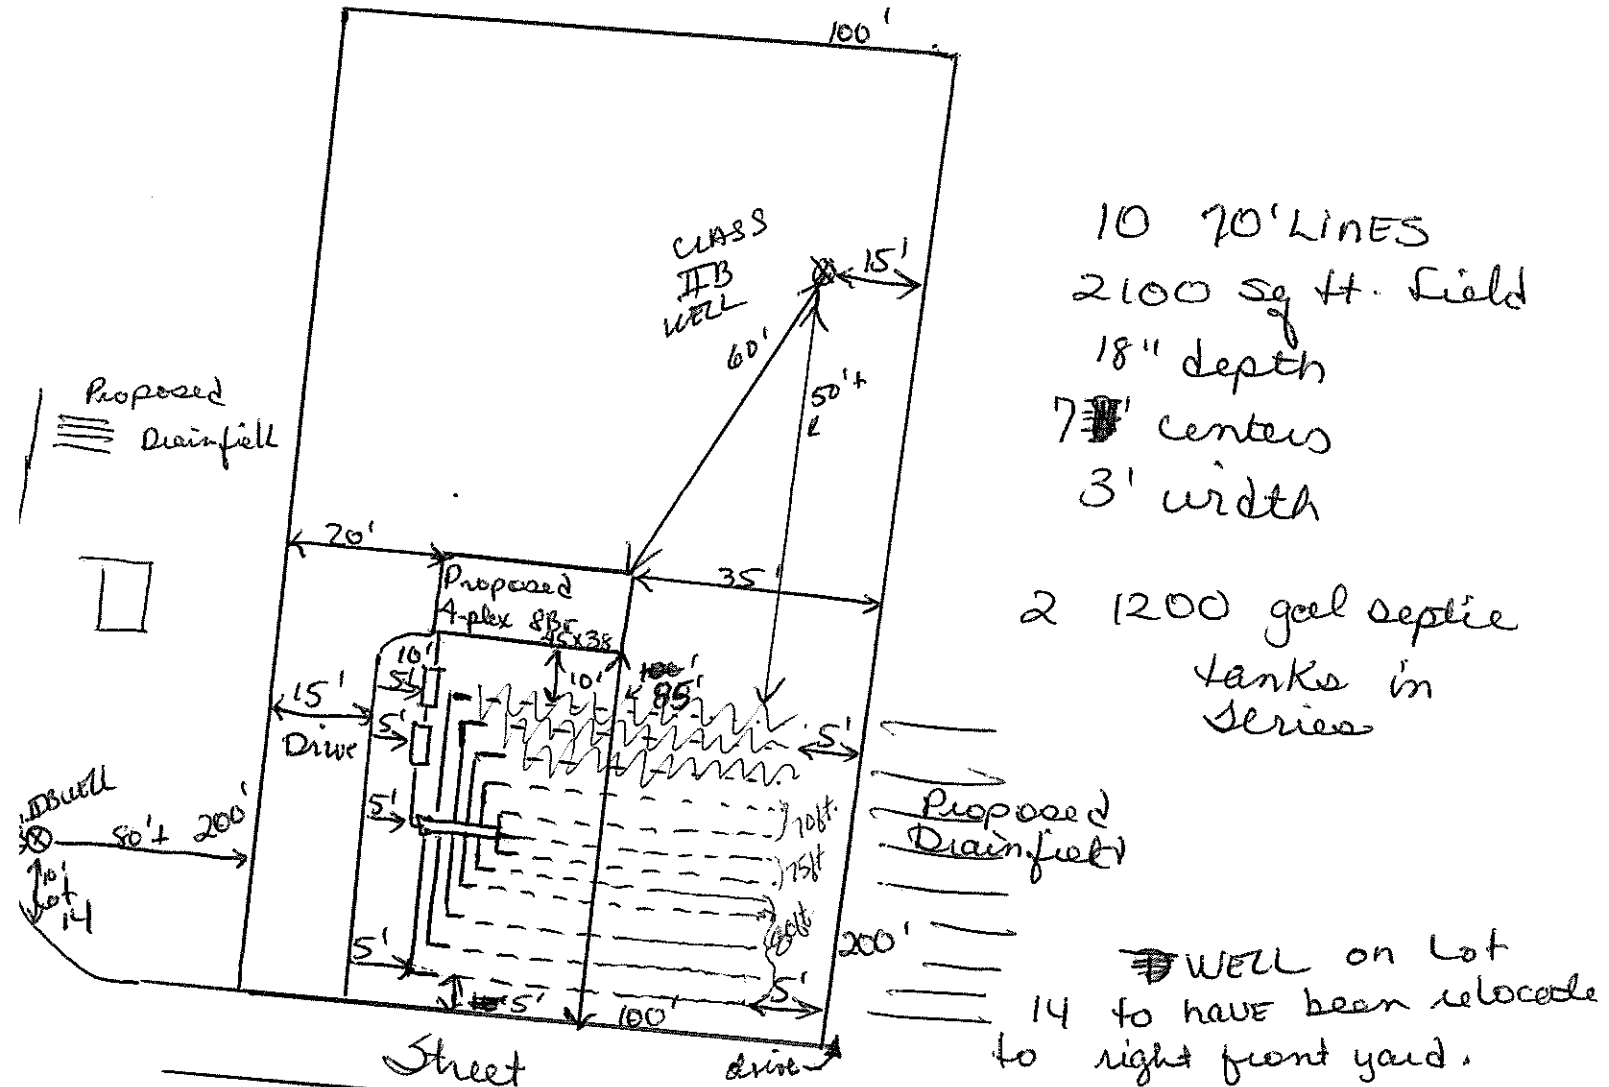 100'
CLASS
IIB
WELL
15'
60'
50'+
Proposed
Drainfield
20'
35'
Proposed
4-plex 8Br
45x38
10'
10'
85'
5'
5'
15'
Drive
5'
5'
IIB WELL
80'+
200'
10'
Lot
14
70ft.
75ft
80ft
Proposed
Drainfield
200'
5'
5'
5'
100'
Street
drive
10 70' LINES
2100 sq ft. field
18" depth
7' centers
3' width
2 1200 gal septic
tanks in
series
WELL on Lot
14 to have been relocate
to right front yard.